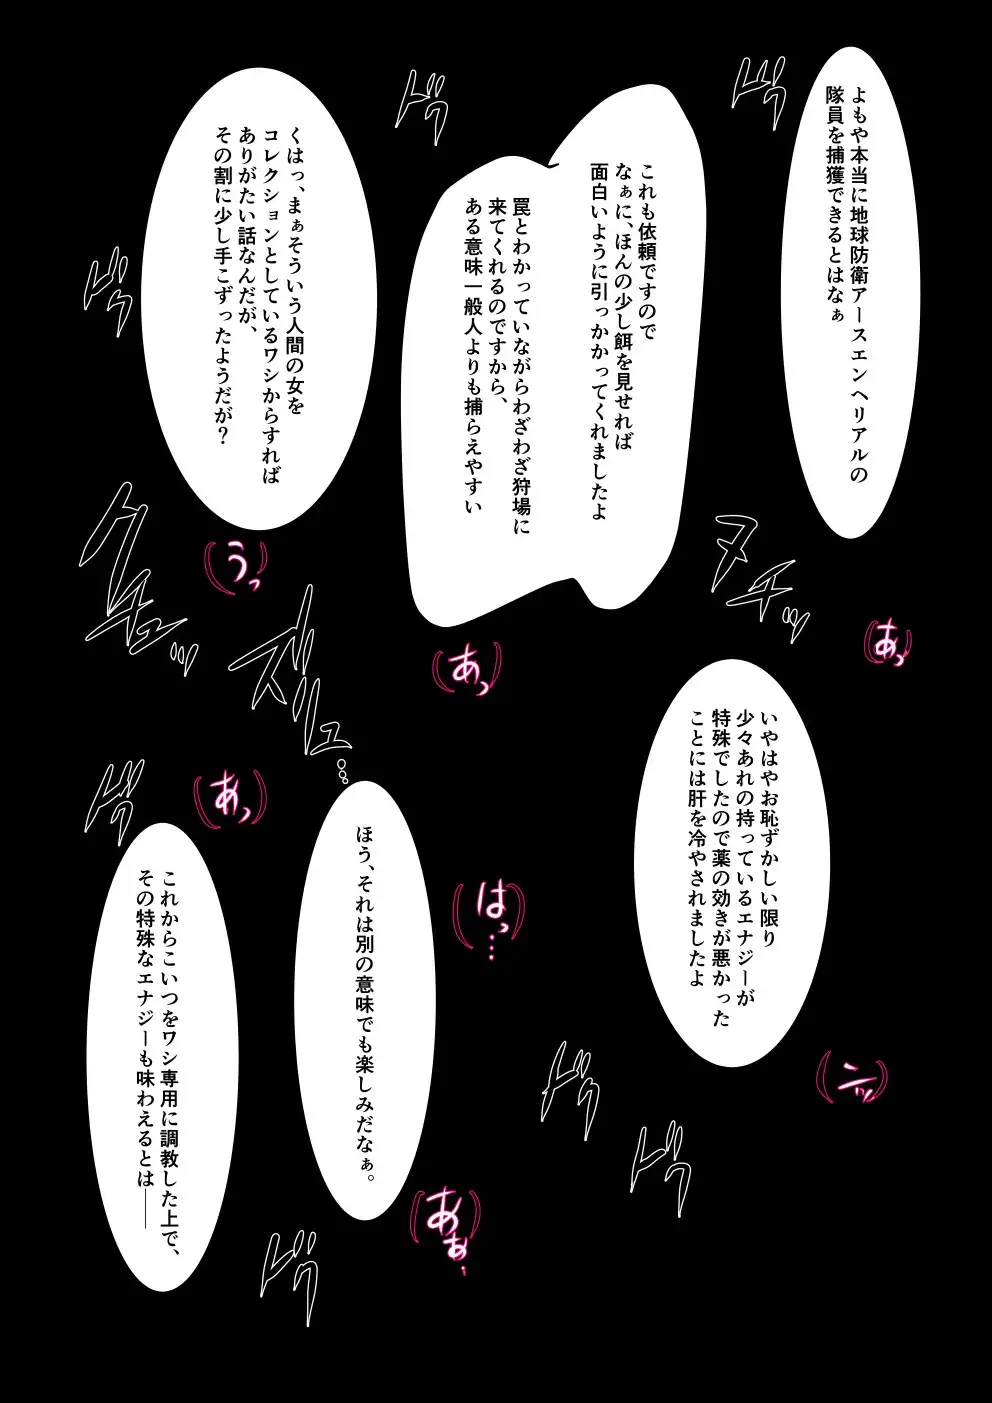 よもや本当に地球防衛アースエンヘリアルの
隊員を捕獲できるとはなぁ
ドヴ
ドヴ
これも依頼ですので
なぁに、ほんの少し餌を見せれば
面白いように引っかかってくれましたよ
罠とわかっていながらわざわざ狩場に
来てくれるのですから、
ある意味一般人よりも捕らえやすい
くはっ、まぁそういう人間の女を
コレクションとしているワシからすれば
ありがたい話なんだが、
その割に少し手こずったようだが？
ドヴ
ヌチッ
(あっ)
(あっ)
(うっ)
グチュッ
ズリュ…
いやはやお恥ずかしい限り
少々あれの持っているエナジーが
特殊でしたので薬の効きが悪かった
ことには肝を冷やされましたよ
(はっ…)
(あっ)
ドヴ
ほう、それは別の意味でも楽しみだなぁ。
これからこいつをワシ専用に調教した上で、
その特殊なエナジーも味わえるとは――
ドヴ
ドヴ
(あぁ.)
ドヴ